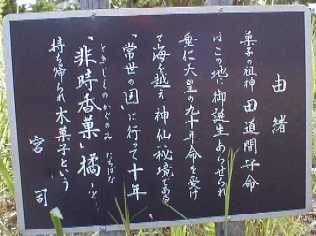 由緒
菓子の祖神 田道間守命
はこの地に御誕生あらせられ
垂仁天皇の九十年命を受け
て海を越え神仙秘境である
「常世の国」に行って十年
「非時香菓」橘を
ときじくのかぐのみ たちばな
持ち帰られ 木菓子という
宮司